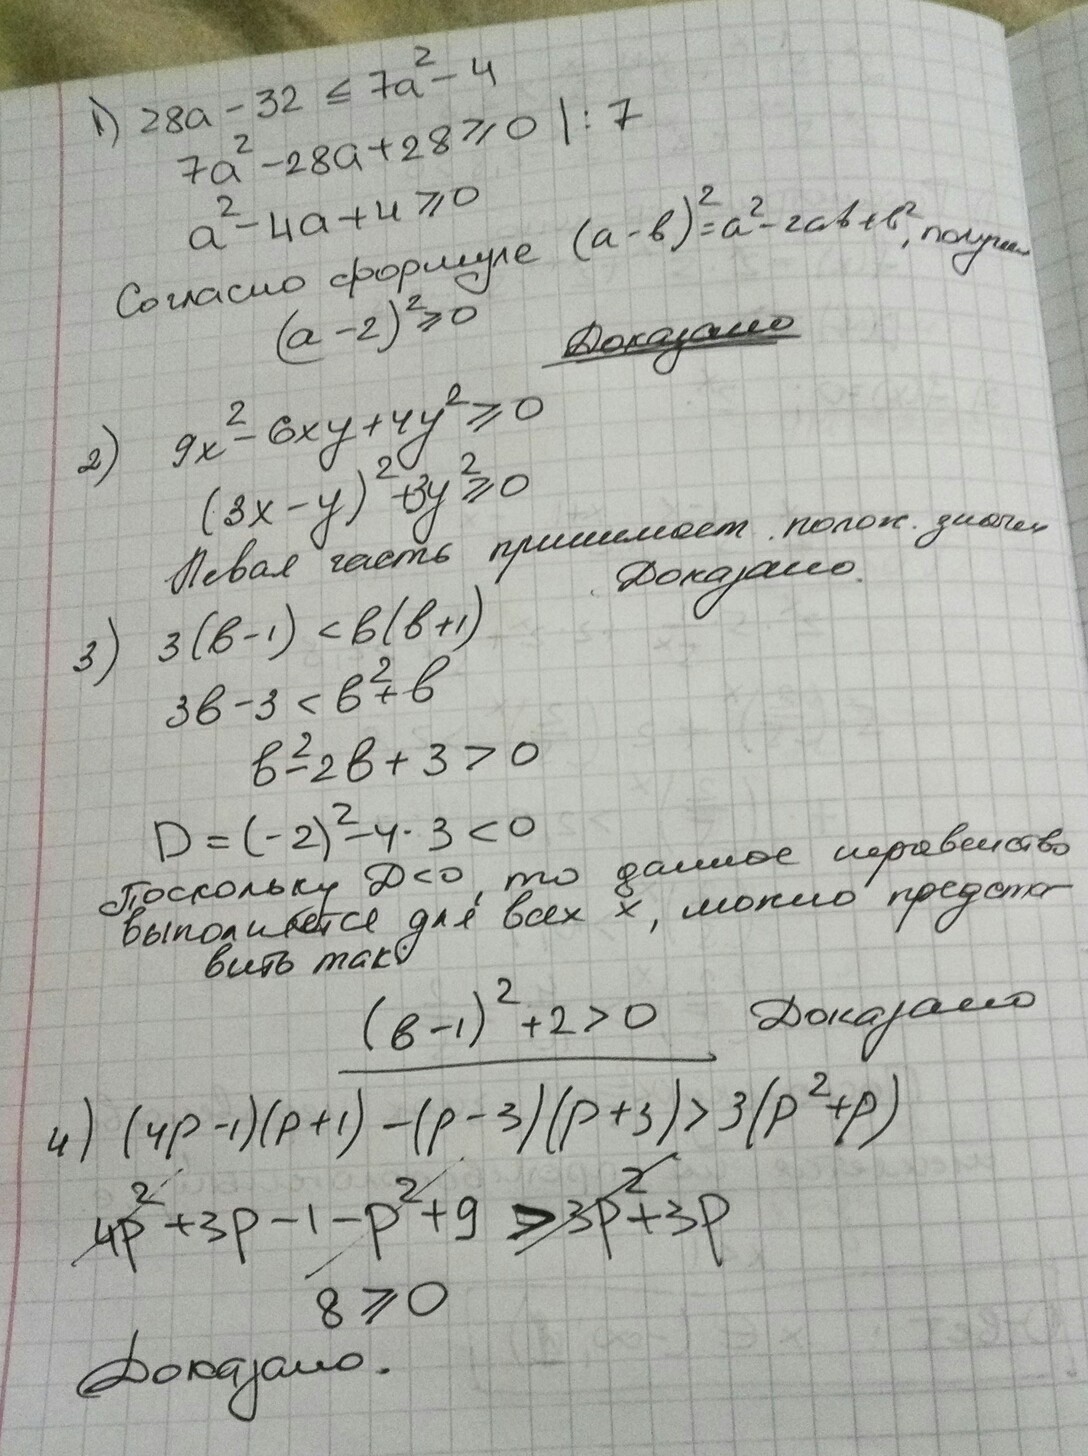 1) 28a - 32 ≤ 7a² - 4
7a² - 28a + 28 ≥ 0 | : 7
a² - 4a + 4 ≥ 0
Согласно формуле (a - в)² = a² - 2ав + в², получим
(a - 2)² ≥ 0
Доказано
2) 9x² - 6xy + 4y² ≥ 0
(3x - y)² + 3y² ≥ 0
Левая часть принимает полож. значен
Доказано.
3) 3(в-1) < в(в+1)
3в - 3 < в² + в
в² - 2в + 3 > 0
D = (-2)² - 4 · 3 < 0
Поскольку D < 0, то данное неравенство
выполняется для всех x, можно предста-
вить так:
(в-1)² + 2 > 0 Доказано
4) (4p-1)(p+1) - (p-3)(p+3) > 3(p²+p)
4p² + 3p - 1 - p² + 9 > 3p² + 3p
8 ≥ 0
Доказано.